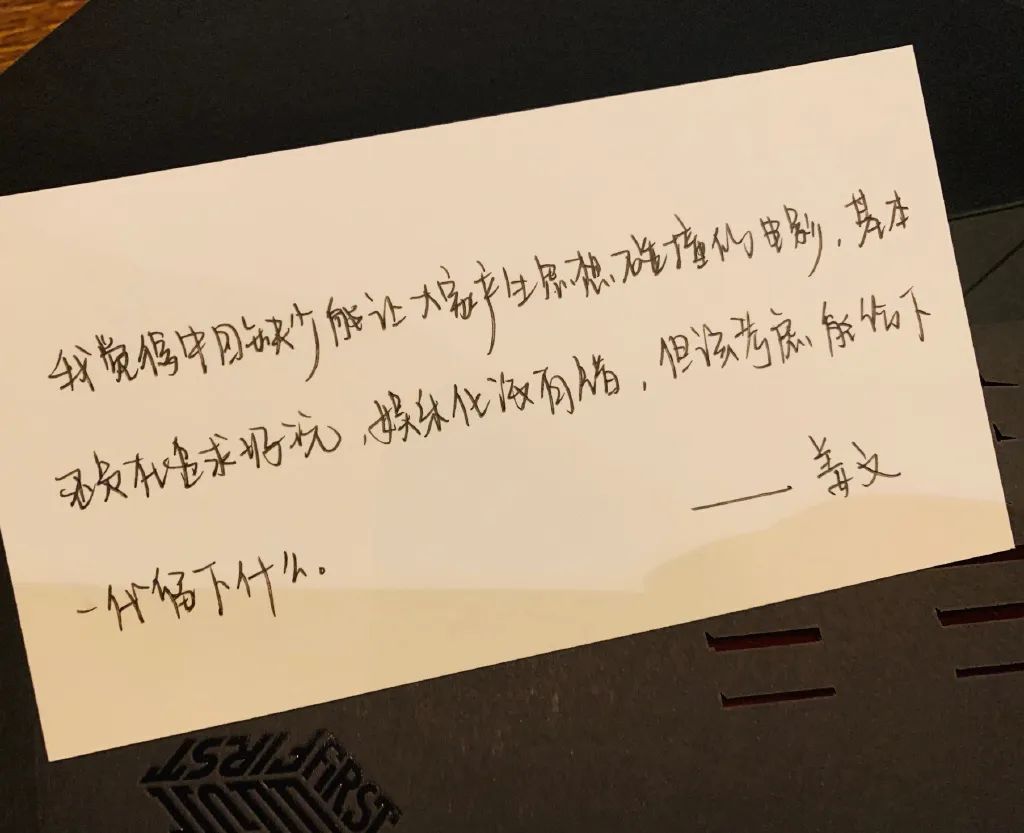 我觉得中国缺少能让大家产生思想碰撞的电影，基本
还是在追求好玩，娱乐化没有错，但该考虑能给下
一代留下什么。
——姜文
FIRST
FIRST